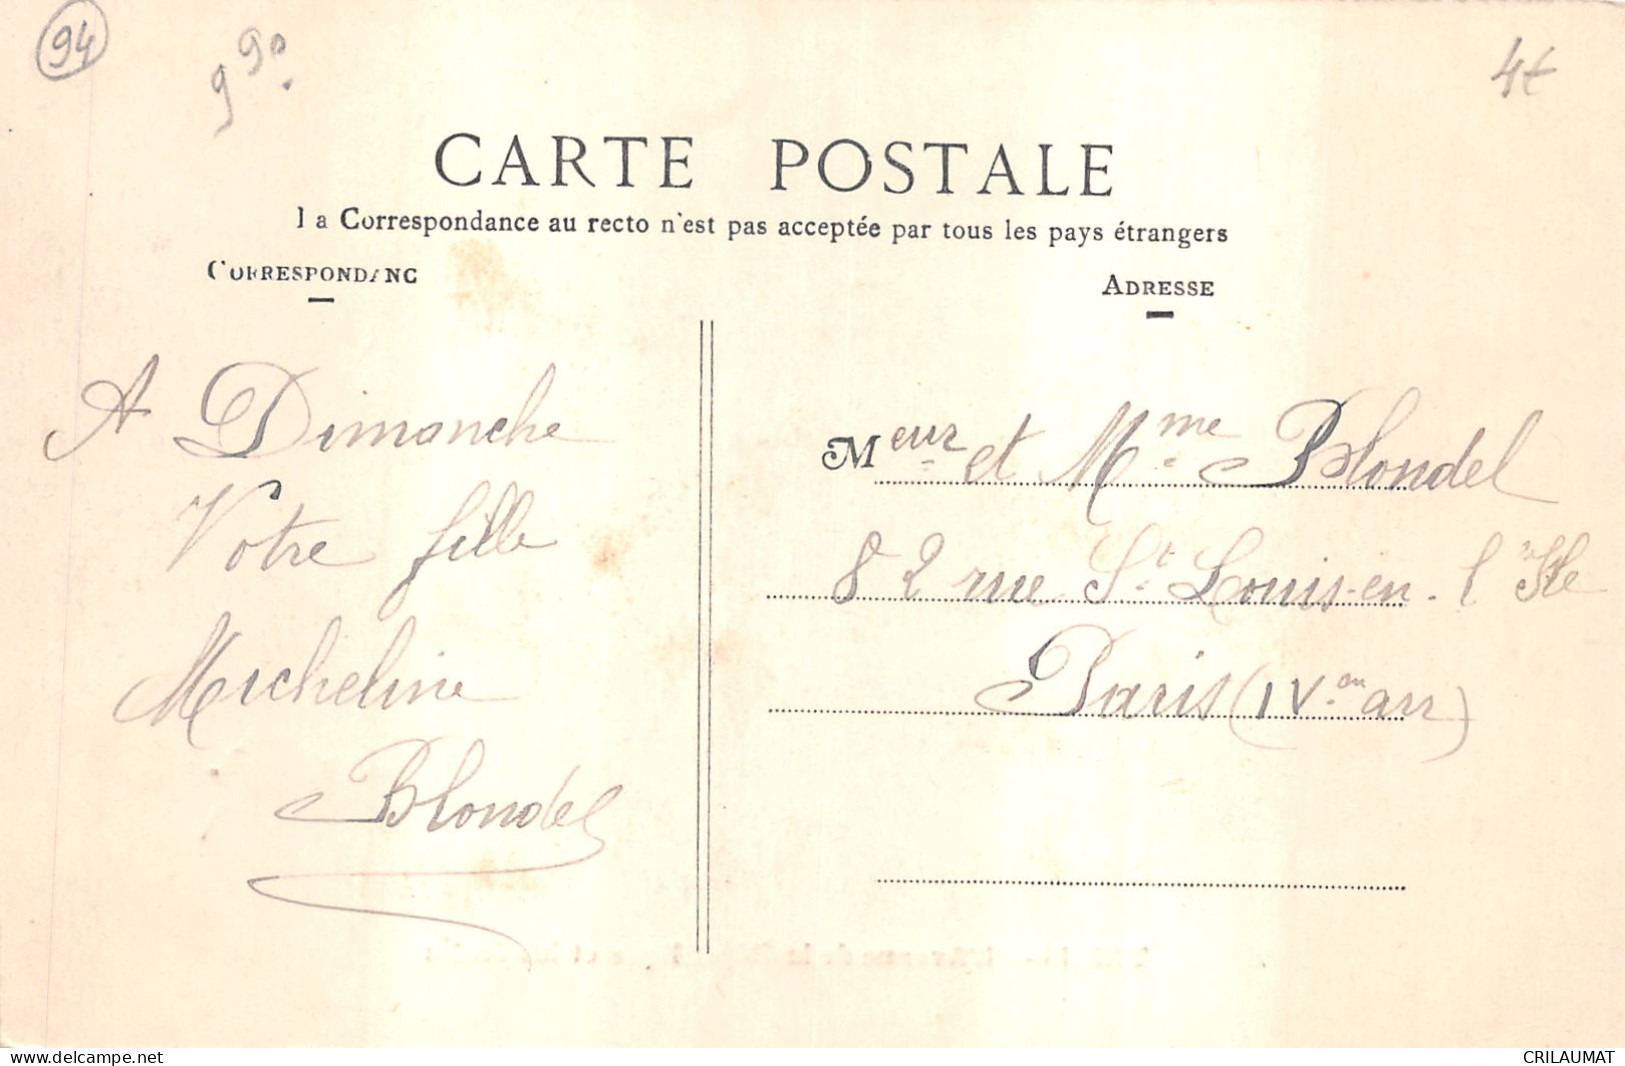 94
990.
4€
CARTE POSTALE
La Correspondance au recto n'est pas acceptée par tous les pays étrangers
CORRESPONDANC
ADRESSE
A Dimanche
Votre fille
Micheline
Blondel
Meur et Mme Blondel
82 rue St. Louis-en-l'Isle
Paris (IVem arr)
www.delcampe.net
CRILAUMAT